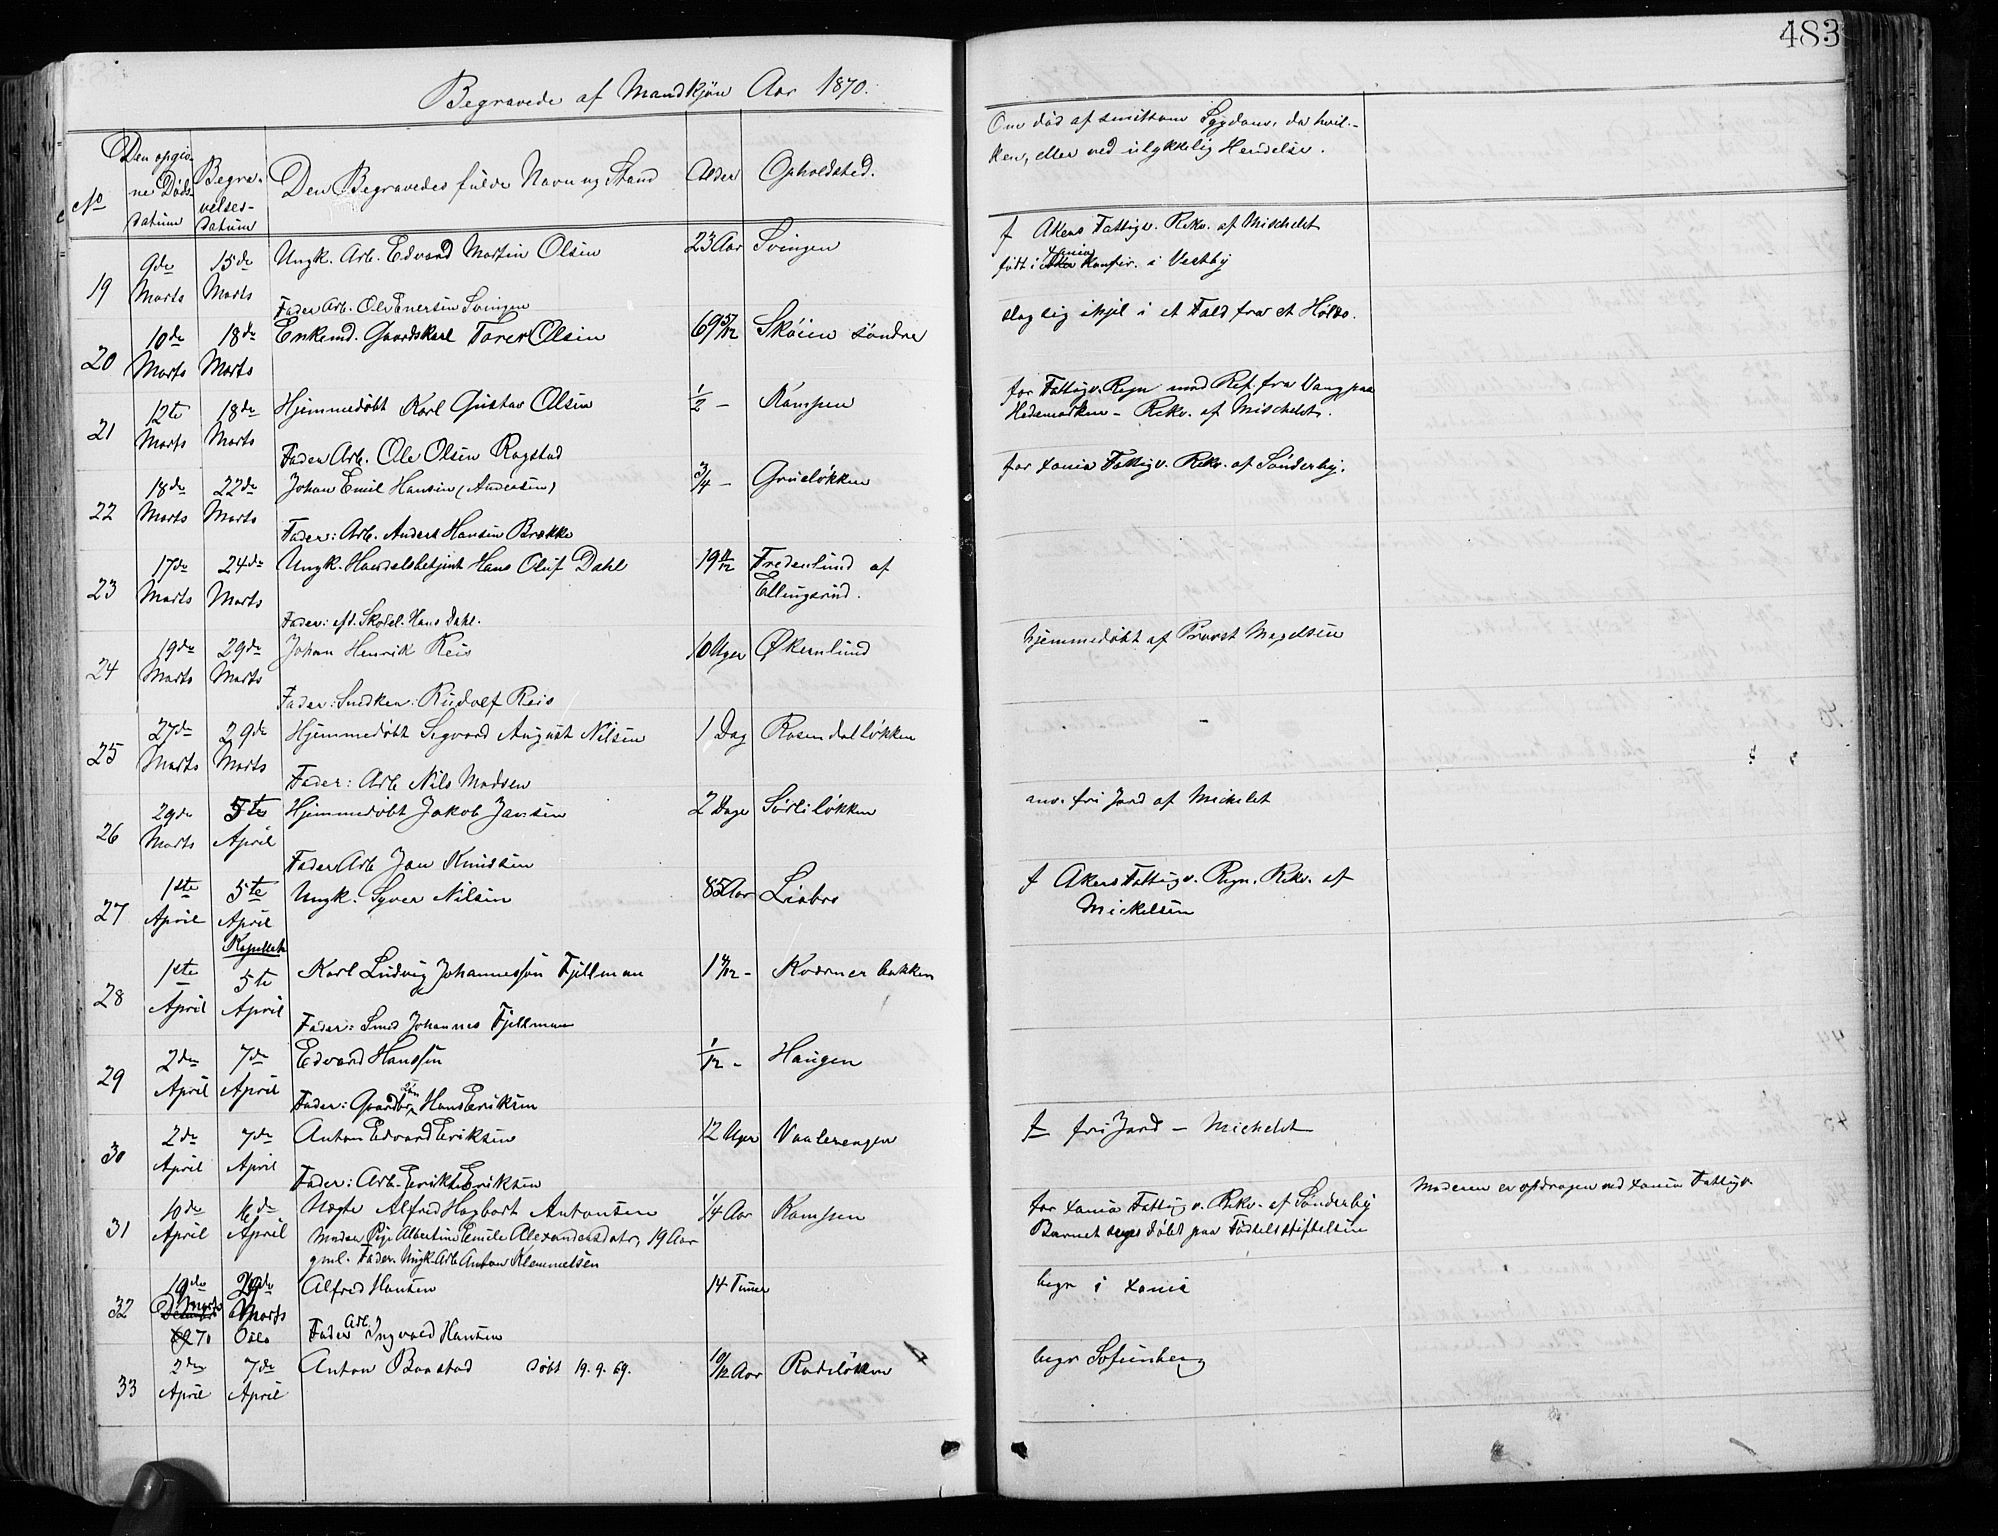 483
Begravede af Mandkjøn Aar 1870.
No
Den opgiv-
ne Døds
datum
Begra-
velses-
datum
Den Begravedes fulde Navn og Stand
Alder
Opholdsted.
Om død af smitsom Sygdom, da hvil-
ken, eller ved ulykkelig Hendelse.
19 9de Marts 15de Marts Ungk. Arb. Edvard Martin Olsen 23 Aar Svingen f Akers Fattigv. Rekv. af Michelet
Fader Arb. Ole Enersen Svingen født i Xania Konfir. i Vestby
20 10de Marts 18de Marts Enkemd. Gaardskarl Torer Olsen 69 5/12 Skøien søndre slog sig ihjel i et Fald fra et Hølæs.
21 12te Marts 18de Marts Hjemmedøbt Karl Gustav Olsen 1/2 – Kampen for Fattigv. Regn med Ref. fra Vang paa
Fader Arb. Ole Olsen Rogstad Hedemarken – Rekv. af Michelet.
22 18de Marts 22de Marts Johan Emil Hansen (Andersen) 3/4 – Grüeløkken for Xania Fattigv. Rekv. af Sønderby.
Fader: Arb. Anders Hansen Brække
23 17de Marts 24de Marts Ungk. Handelsbetjent Hans Oluf Dahl 19 Fredenlund af
Ellingsrud.
Fader: afd. Skolel. Hans Dahl.
24 19de Marts 29de Marts Johan Henrik Reis 10 Uger Økernlund hjemmedøbt af Provst Magelsen
Fader: Snedker: Rudolf Reis
25 27de Marts 29de Marts Hjemmedøbt Sigvard August Nilsen 1 Dag Rosendalløkken
Fader: Arb Nils Madsen
26 29de Marts 5te April Hjemmedøbt Jakob Jansen 2 Dage Sørliløkken anv. fri Jord af Michelet
Fader Arb Jan Knudsen
27 1ste April 5te April Ungk. Syver Nilsen 85 Aar Liabro f Akers Fattigv. Regn. Rekv. af
Mickelsen
Kapellet
28 1ste April 5te April Karl Ludvig Johannessøn Fjellman 1 – Kværnerbakken
Fader: Smed Johannes Fjellman
29 2de April 7de April Edvard Hanssen 1/12 – Haugen
Fader: Gaardbr Hans Eriksen
30 2de April 7de April Anton Edvard Eriksen 12 Uger Vaalerengen f fri Jord – Michelet
Fader: Arb. Erik Eriksen
31 10de April 16de April Uægte Alfred Hagbart Antonsen 1/4 Aar Kampen for Xania Fattigv. Rekv. af Sønderby Moderen er opdragen ved Xania Fattigv
Moder Pige Albertine Emilie Alexandersdatr, 19 Aar Barnet døbt paa Fødselsstiftelsen
gml. Fader Ungk Arb Anton Klemmetsen
32 19de Marts 70 29de Marts Oslo Alfred Hansen 14 Timer begr i Xania
Fader Arb. Ingvald Hansen
33 2den April 7de April Anton Baastad døbt 19.9.69. 10/12 Aar Rodeløkken begr Sofienberg